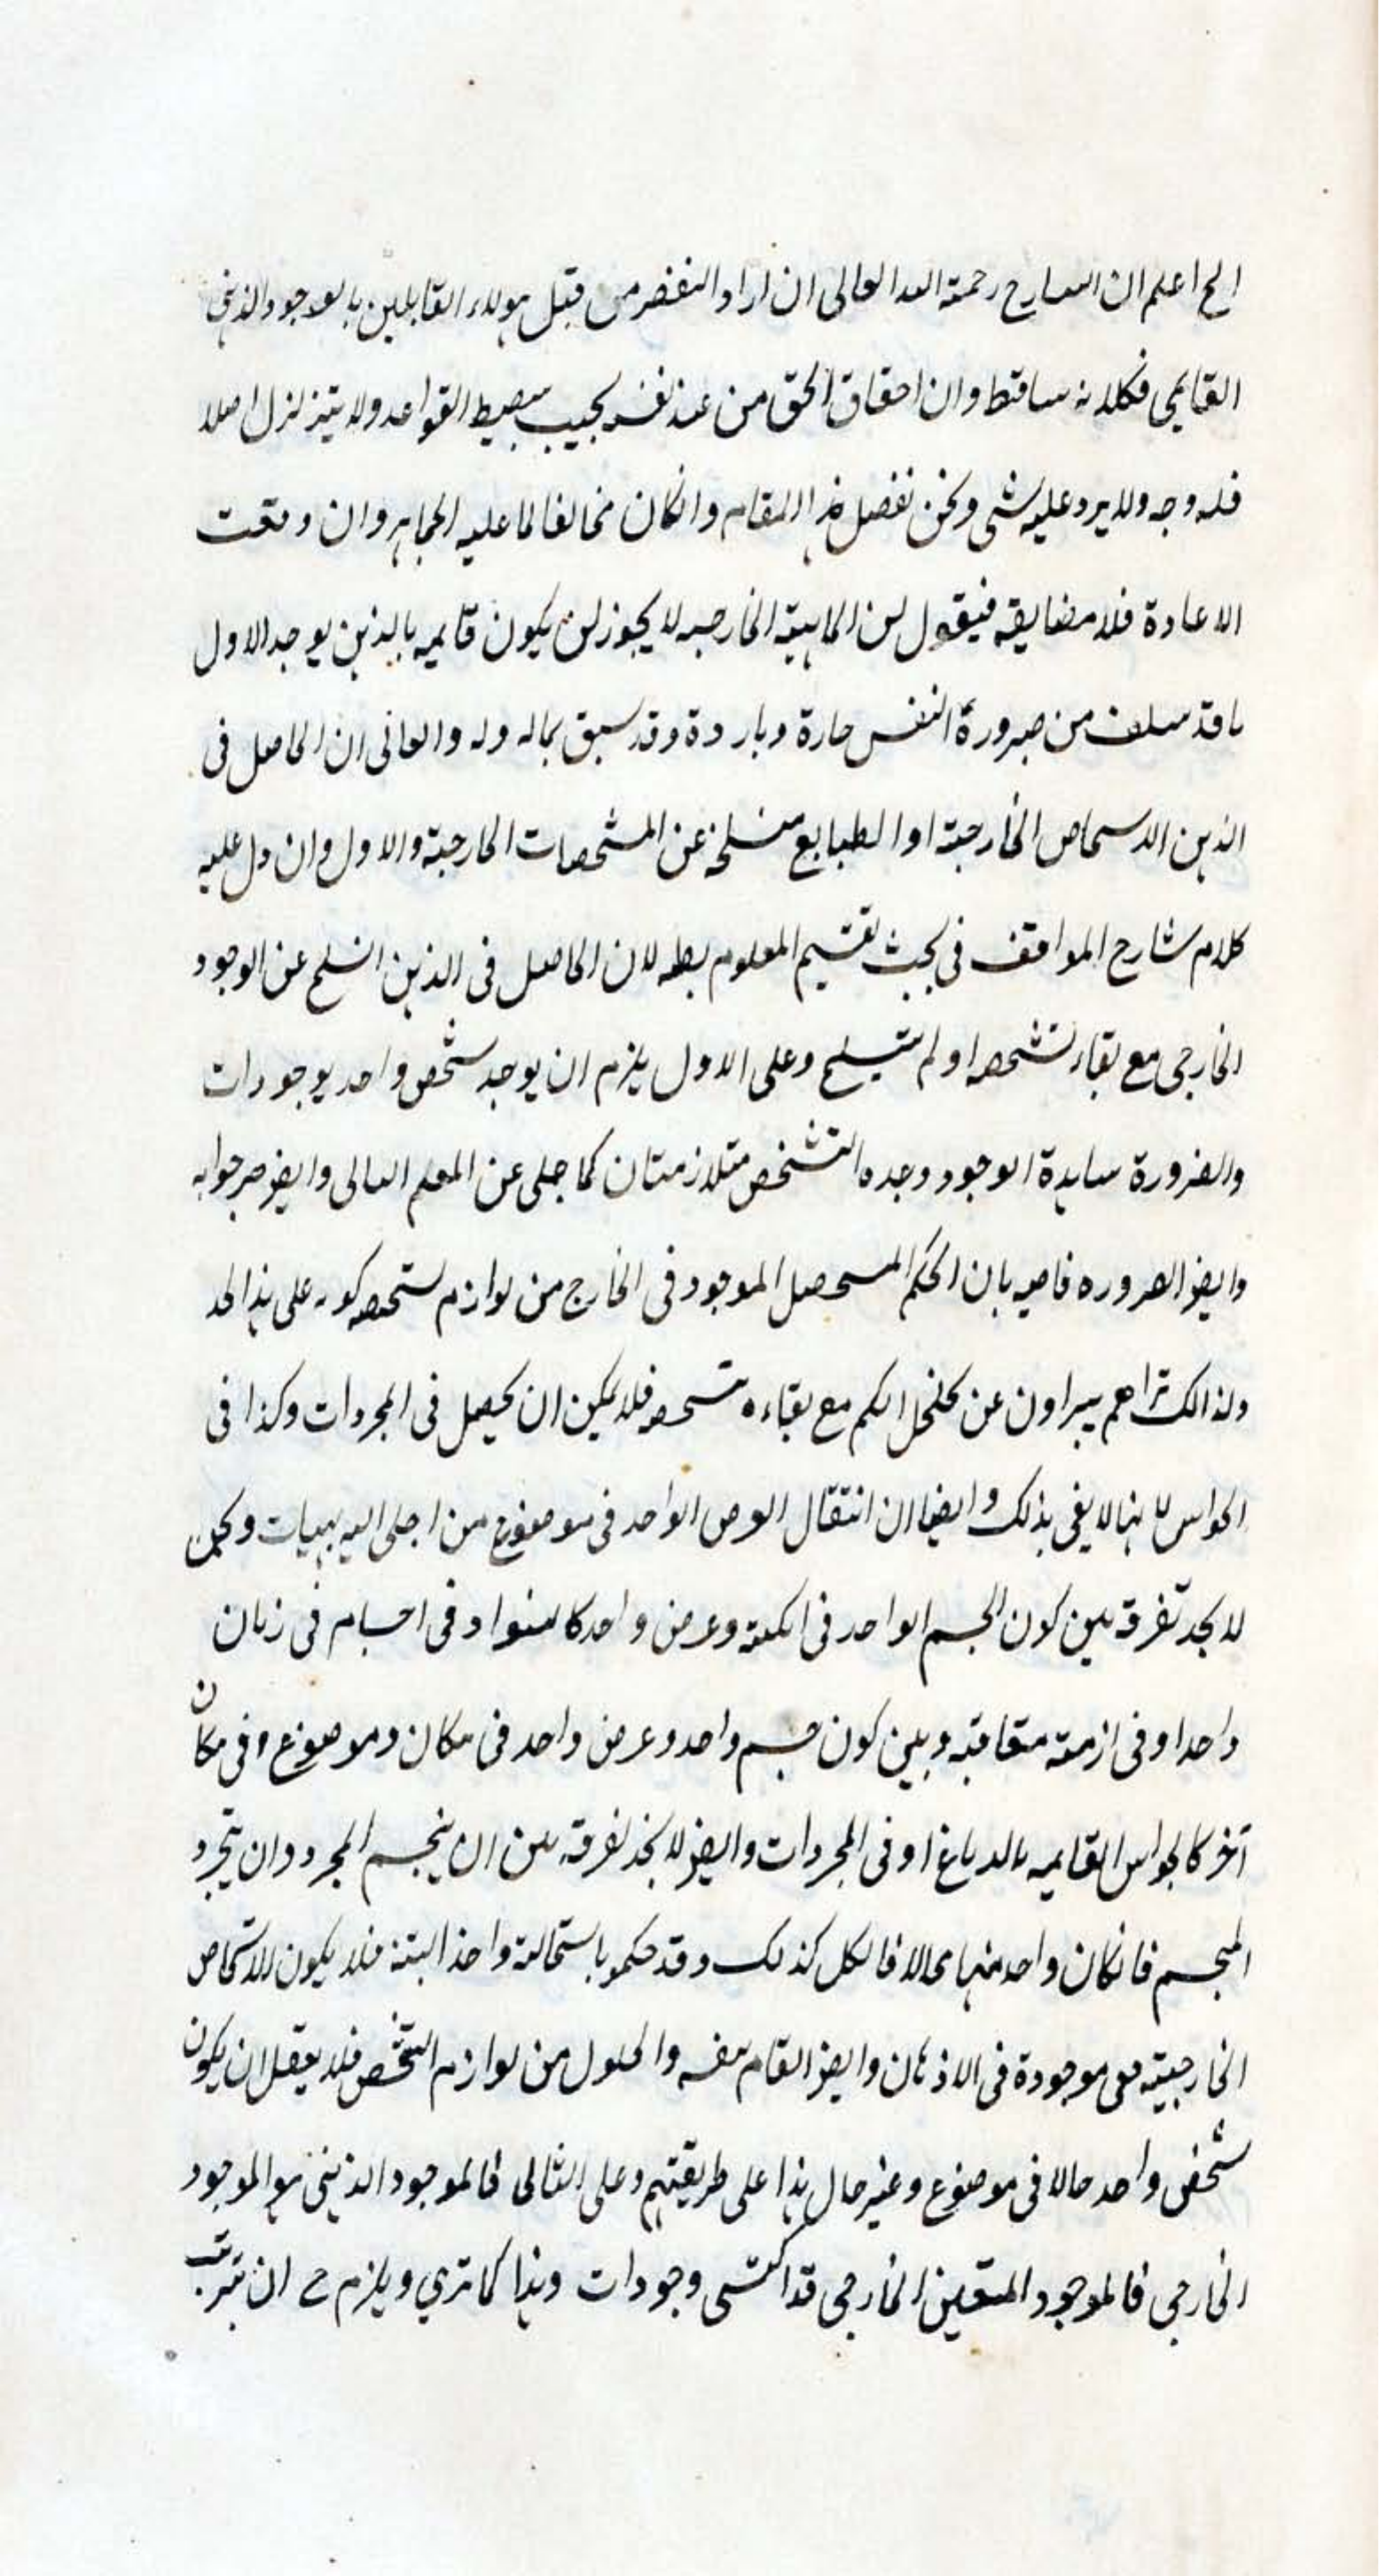 الخ اعلم ان الشارح رحمة الله تعالى ان اراد النقض من قبل هولاء القايلين بالوجود الذهنى
القايمى فكلامه ساقط وان احقاق الحق من عند نفسه بحيث القواعد ولا يتزلزل اصلا
فله وجه ولا يرد عليه شى ونحن نفصل هذا المقام وانكان مخالفا لما عليه الجماهير وان وقعت
الاعادة فلا مضايقه فيقول ان الماهية الخارجيه لا يجوز ان يكون قايمه بالذهن بوجه الاول
ما قد سلف من صيرورة النفس حارة وباردة وقد سبق بماله وله والثانى ان الحاصل فى
الذهن الاشخاص الخارجية او الطبايع منسلخة عن المشخصات الخارجية والاول وان دل عليه
كلام شارح المواقف فى بحث تقسيم المعلوم بط لان الحاصل فى الذهن انسلخ عن الوجود
الخارجى مع بقاء تشخصه او لم ينسلخ وعلى الاول يلزم ان يوجد شخص واحد بوجودات
والضرورة شاهدة الوجود وحده التشخص متلازمتان كما جلى عن المعلم الثانى وايض صرحوا به
وايض الضروره قاضيه بان الحكم المستحصل الموجود فى الخارج من لوازم تشخصه كونه على هذا الحد
ولذالك تراهم يبراون عن تخلخل الكم مع بقاءه تشخصه فلا يمكن ان يحصل فى المجردات وكذا فى
الحواس لانها لا يفى بذلك وايضا ان انتقال العرض الواحد فى موضوع من اجلى البديهيات ونحن
لا نجد تفرقة بين كون الجسم الواحد فى امكنه وعرض واحد كالسواد فى اجسام فى زمان
واحد او فى ازمنه متعاقبه وبين كون جسم واحد وعرض واحد فى مكان وموضوع وفى مكان
آخر كالحواس القايمه بالدماغ او فى المجردات وايض لا نجد تفرقه بين ان يتجسم المجرد وان يتجرد
المجسم فانكان واحد منها الا فالكل كذلك وقد حكمو باستحالة واحد البتة فلا يكون الاشخاص
الخارجيته هى موجودة فى الاذهان وايض القيام بنفسه والحلول من لوازم التشخص فلا يعقل ان يكون
شخص واحد حالا فى موضوع وغير حال هذا على طريقتهم وعلى الثانى فالموجود الذهنى هو الموجود
الخارجى فالموجود المتعين الخارجى قد اكتسى وجودات وهذا كما ترى ويلزم ح ان يترتب